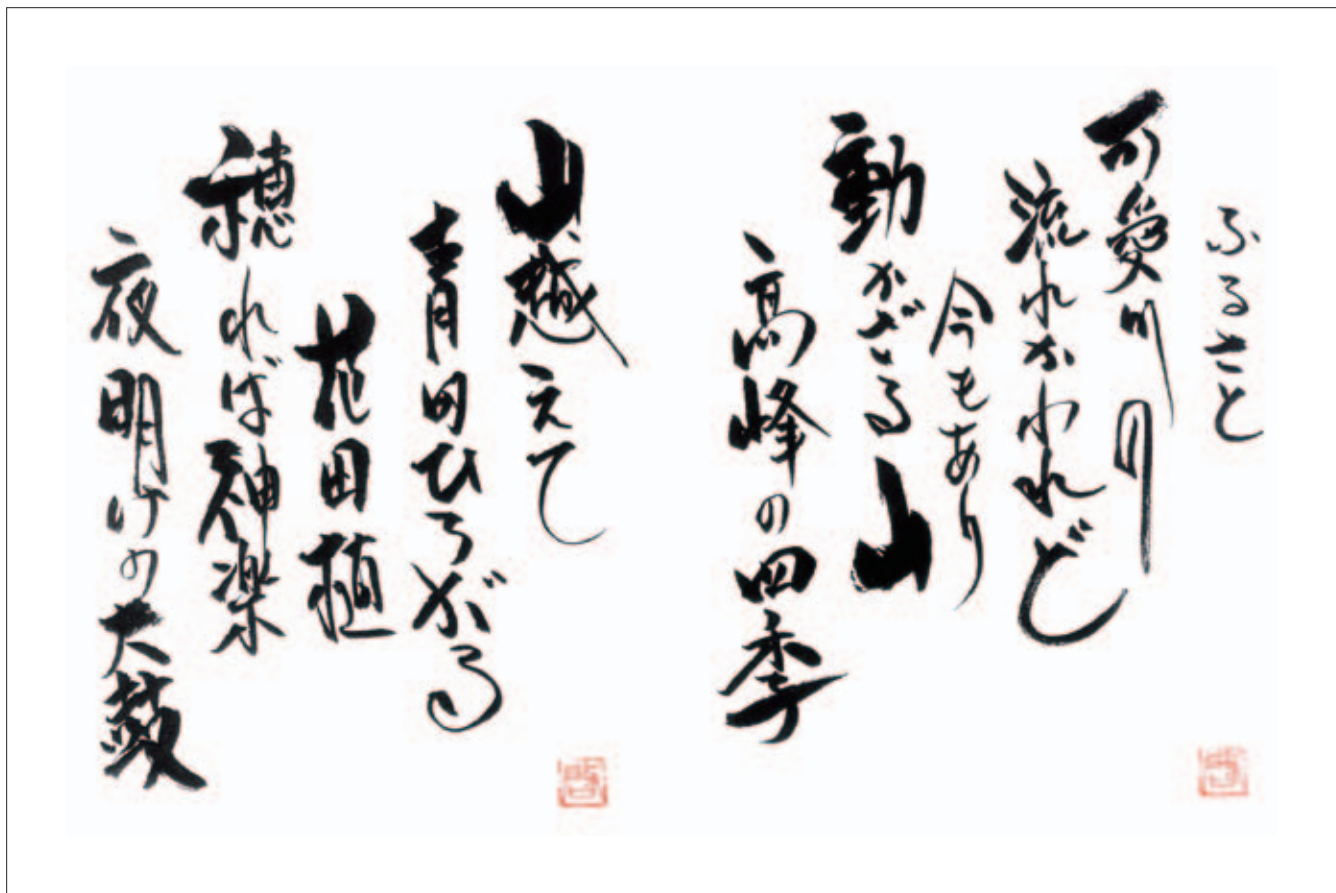 ふるさと
可愛川の
流れかわれど
今もあり
動かざる山
高峰の四季
山越えて
青田ひろがる
花田植
穂れば神楽
夜明けの大鼓